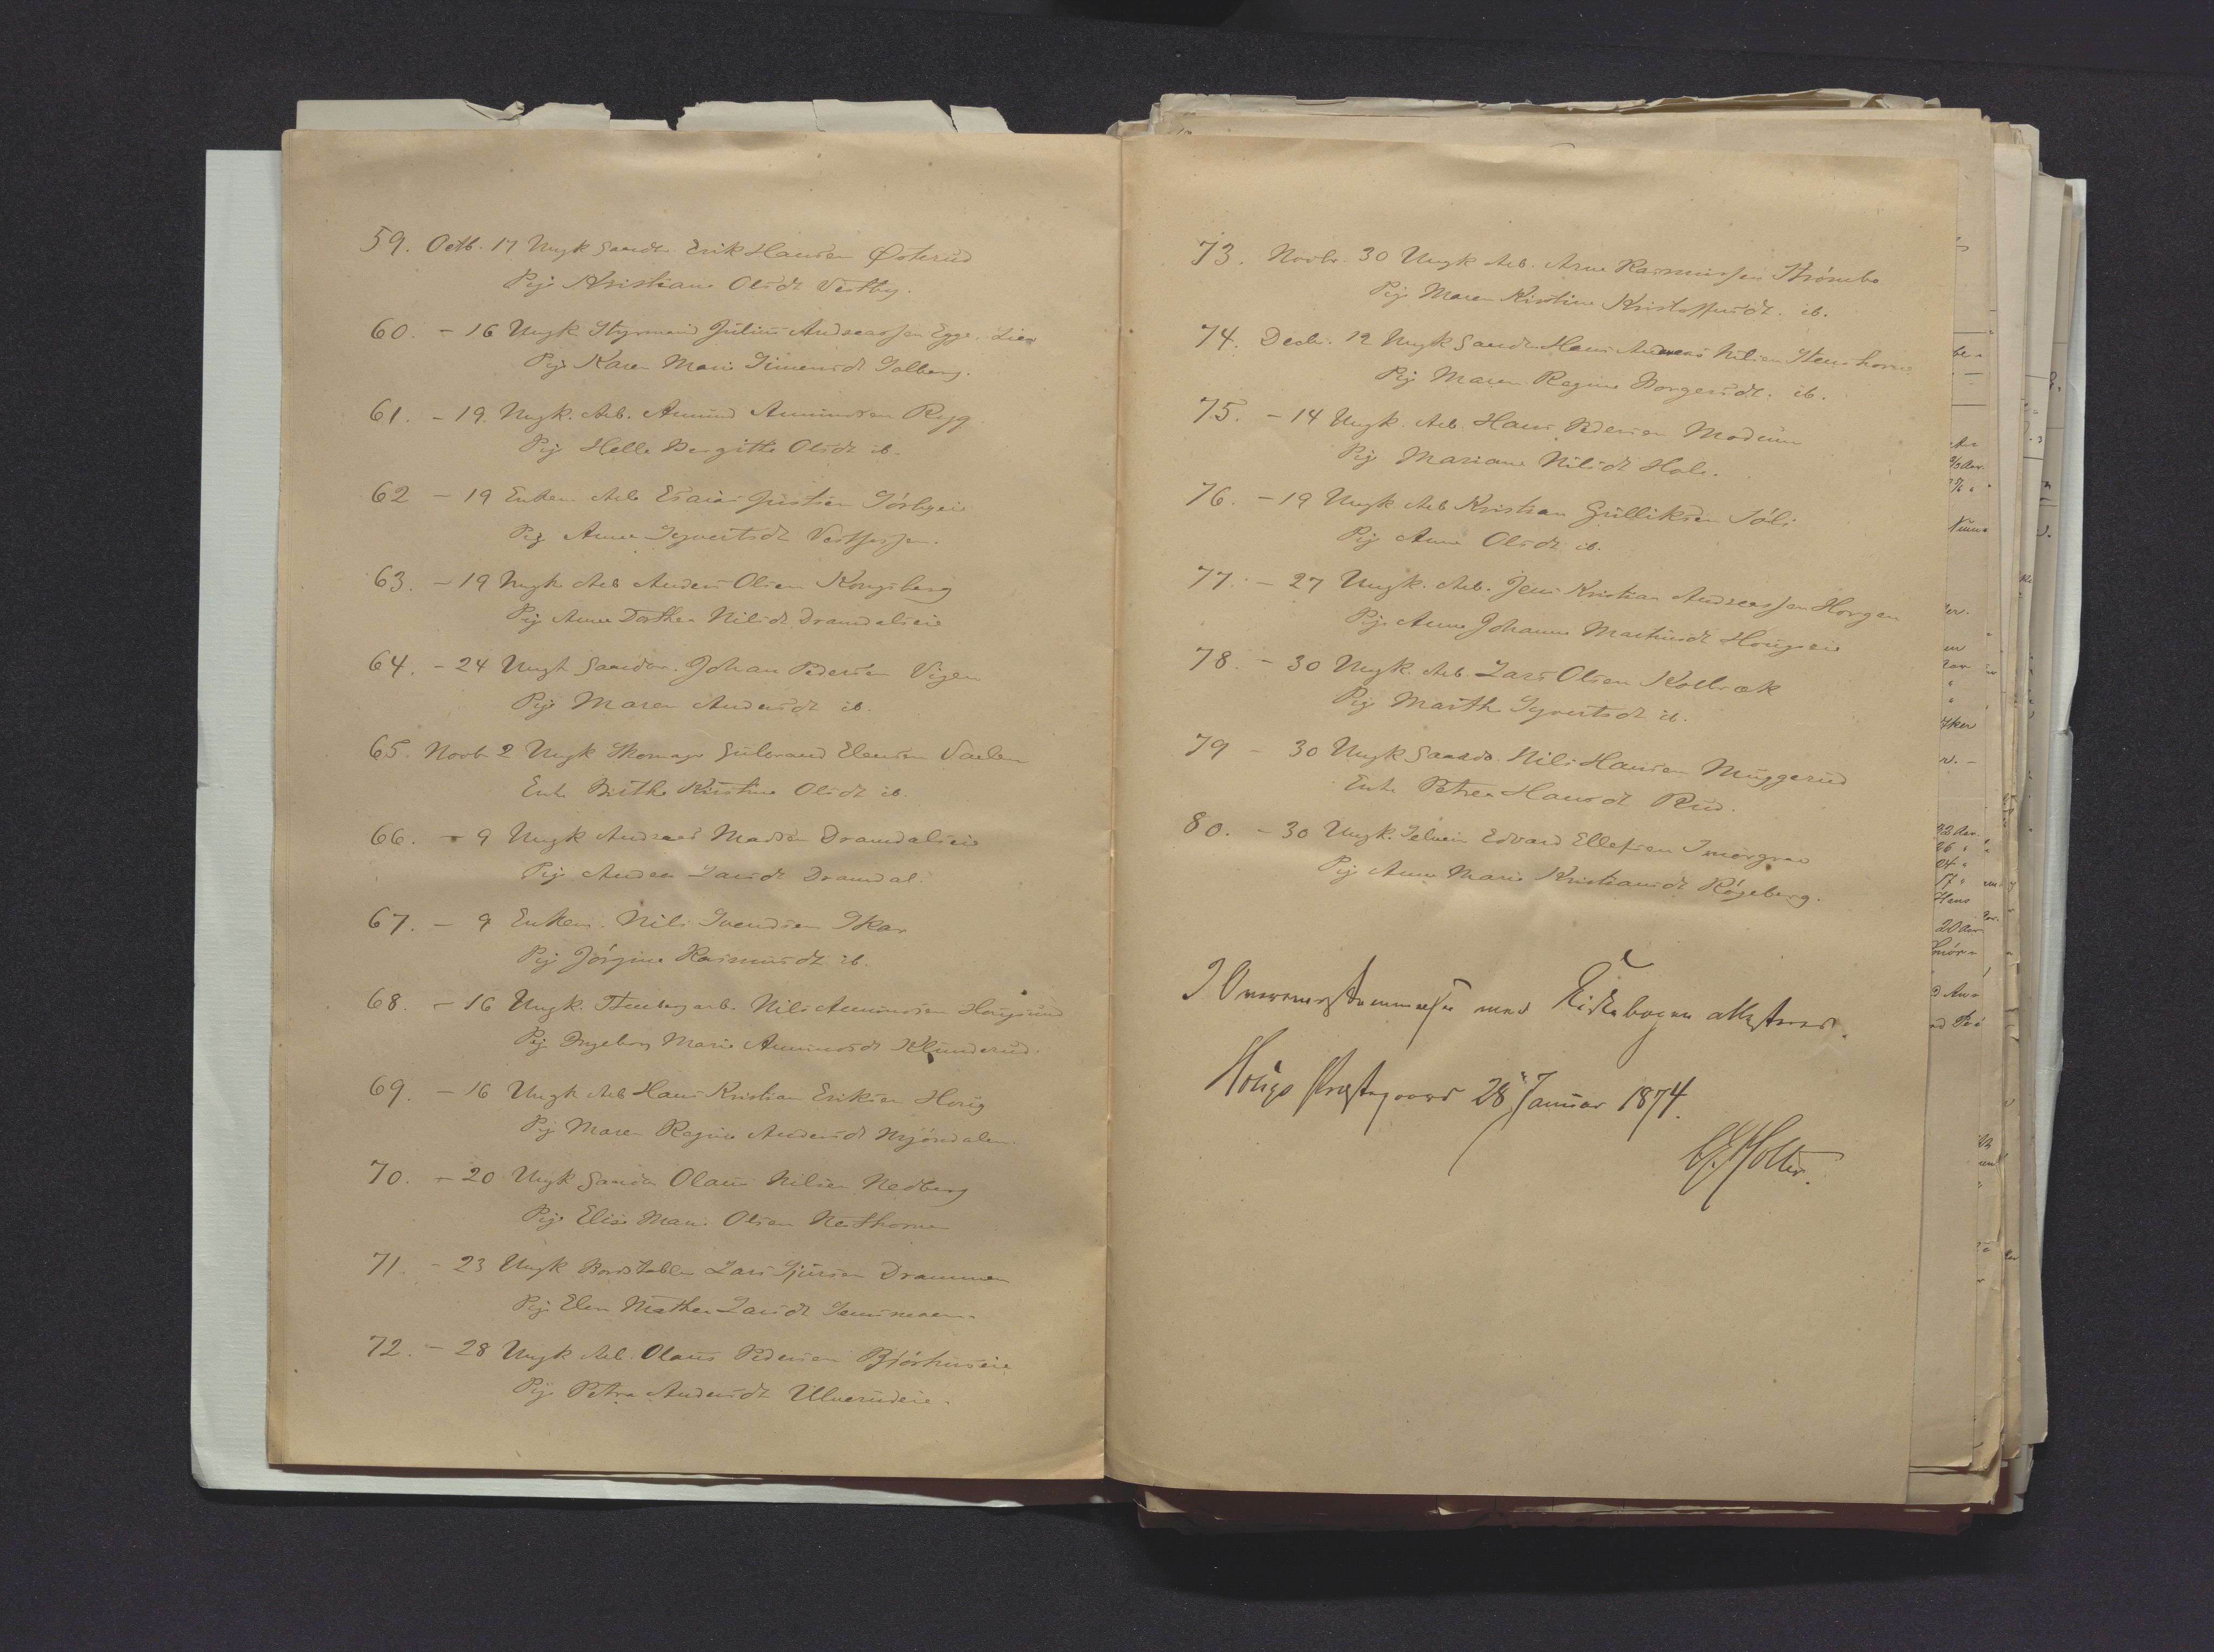 59. Octb. 17 Ungk Gaardbr. Erik Hansen Østerud
Pige Kristiane Olsdt Vestby.
60. - 16 Ungk Styrmand Julius Andreassen Egge. Lier
Pige Karen Marie Simensdt Solberg.
61. - 19. Ungk. Arb. Amund Amundsen Rygg
Pige Helle Bergitte Olsdt ib.
62 - 19 Enkem Arb Esaias Justsen
Pig Anne Syvertsdt Vestfossen.
63. - 19 Ungk Arb Anders Olsen Kongsberg
Pig Anne Dorthea Nilsdt Dramdalseie
64. - 24 Ungk Gaardbr. Johan Pedersen Vigen
Pige Maren Andersdt ib.
65. Novb 2 Ungk Skomagr Gulbrand Elensen
Enke Birthe Kirstine Olsdt ib.
66. - 9 Ungk Andreas Madsen Dramdalseie
Pige Andrea Larsdt Dramdal.
67. - 9 Enkem. Nils Svendsen Skar
Pig Jörgine Rasmusdt ib.
68. - 16 Ungk. arb. Nils Amundsen Hougsund
Pig Ingeborg Marie Amundsdt Klunderud.
69. - 16 Ungk Arb Hans Kristian Eriksen Houg
Pig Maren Regine Andersdt Mjöndalen.
70. - 20 Ungk Gaardbr Olaus Nilsen Nedberg
Pige Elise Marie Olsen
71. - 23 Ungk Bordstabler Lars Sjursen Drammen
Pige Elen Mathea Larsdt
72. - 28 Ungk Arb. Olaus Pedersen
Pige Petra Andersdt Ulverudeie.
73. Novbr. 30 Ungk Arb. Arne Rasmussen Strömbo
Pig Maren Kirstine Kristoffersdt. ib.
74. Decb. 12 Ungk Gaardbr Hans Andreas Nilsen Stenshorne
Pig Maren Regine Borgersdt. ib.
75. - 14 Ungk. Arb. Hans Pedersen Modum
Pig Mariane Nilsdt Hals.
76. - 19 Ungk Arb Kristian Gulliksen Söli
Pig Anne Olsdt ib.
77. - 27 Ungk. Arb. Jens Kristian Andreassen Horgen
Pige Anne Johanne Martinsdt Hougseie
78. - 30 Ungk. Arb. Lars Olsen Kolbræk
Pig Marthe Syvertsdt ib.
79 - 30 Ungk Gaardbr. Nils Hansen Muggerud
Enke Petrea Hansdt Rud.
80. - 30 Ungk. Edvard Ellefsen
Pige Anne Marie Kristiansdt Rögeberg.
I Overensstemmelse med Kirkebogen attesteres.
Hougs Præstegaard 28 Januar 1874.
Holter.